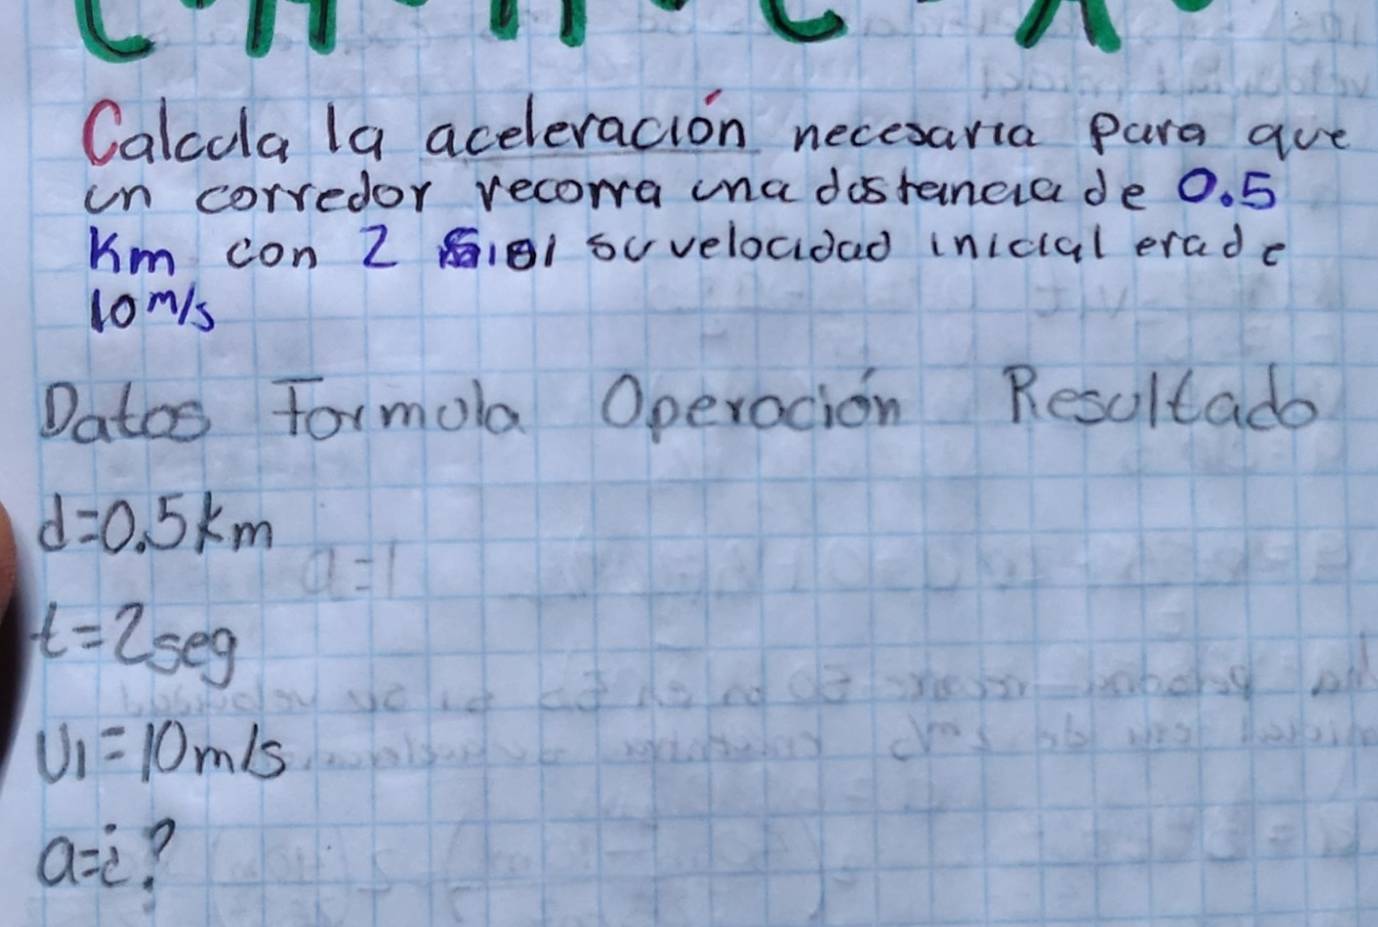 Calcula la aceleración necesaria para que
un corredor recorra una distancia de 0.5
Km con 2 si su velocidad inicial era de
10 m/s
Datos Formula Operación Resultado
d=0.5km
a=1
t=2seg
U1=10m/s
a=¿?